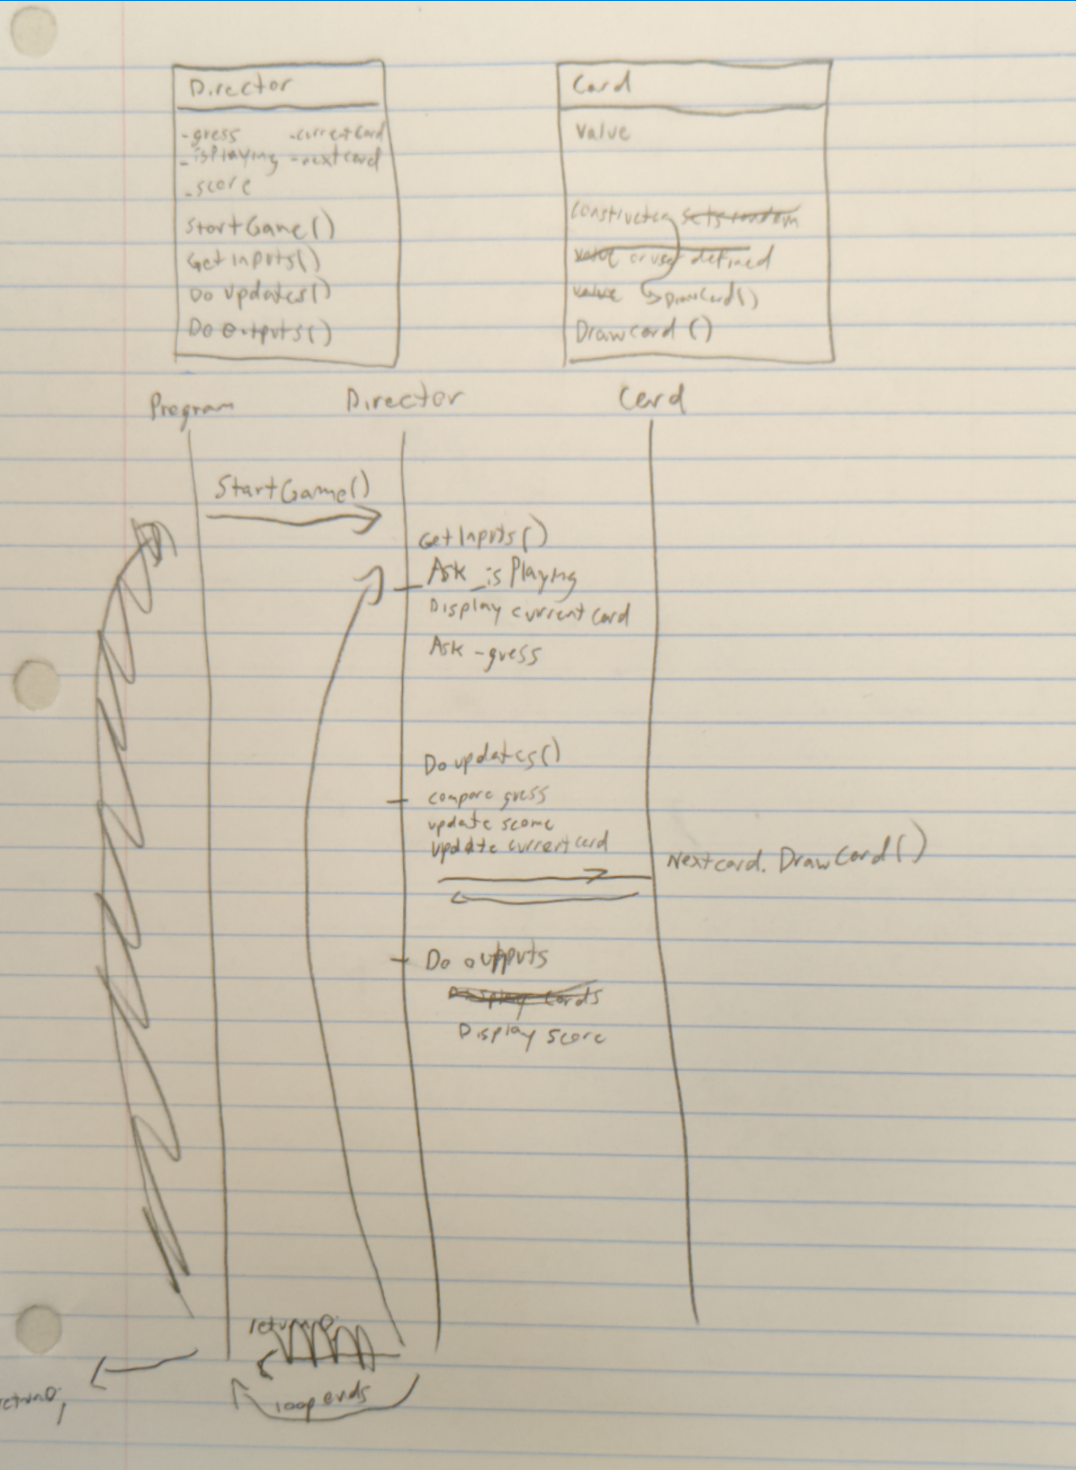 Director
-guess -currentcard
-isPlaying -nextcard
-score
StartGame()
Get inputs()
Do updates()
Do outputs()
Card
value
constructor sets random
value or user defined
value DrawCard()
DrawCard()
Program Director Card
StartGame()
Get Inputs()
Ask _isPlaying
Display current card
Ask -guess
Do updates()
compare guess
update score
update current card
Nextcard. DrawCard()
Do outputs
Display cards
Display score
return 0;
loop ends
return 0;